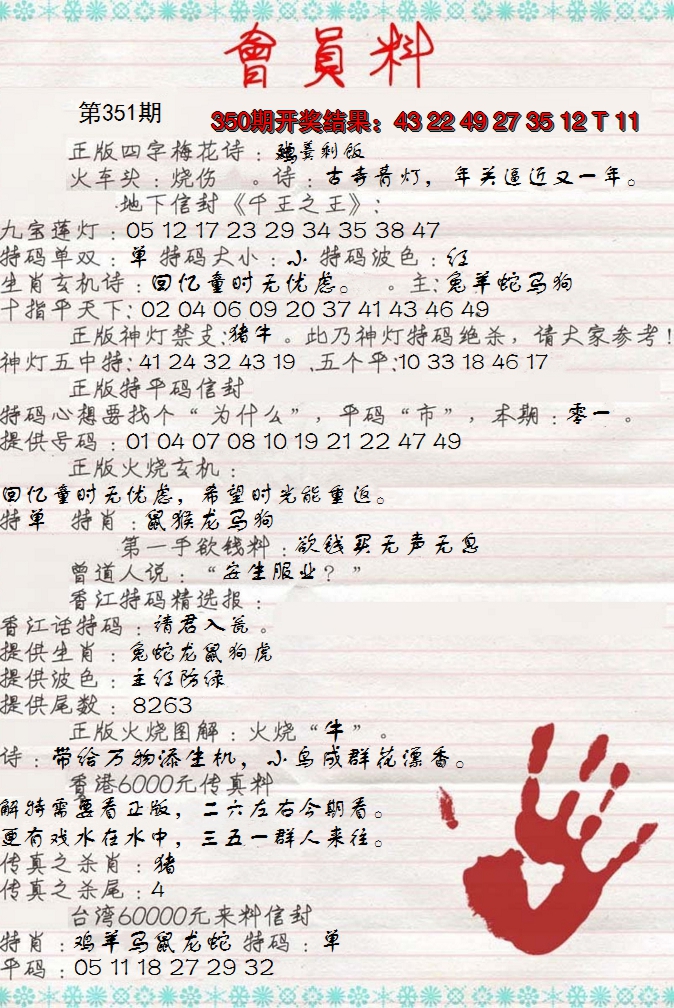 會員料
第351期
350期开奖结果：43 22 49 27 35 12 T 11
正版四字梅花诗：羹剩饭
火车头：烧伤 。诗：古寺青灯，年关逼近又一年。
地下信封《千王之王》：
九宝莲灯：05 12 17 23 29 34 35 38 47
特码单双：单 特码大小：小 特码波色：红
生肖玄机诗：回忆童时无忧虑。 。主：兔羊蛇马狗
十指平天下：02 04 06 09 20 37 41 43 46 49
正版神灯禁支：猪牛。此乃神灯特码绝杀，请大家参考！
神灯五中特：41 24 32 43 19 .五个平：10 33 18 46 17
正版特平码信封
特码心想要找个“为什么”，平码“市”，本期：零一。
提供号码：01 04 07 08 10 19 21 22 47 49
正版火烧玄机：
回忆童时无忧虑，希望时光能重返。
特单 特肖：鼠猴龙马狗
第一手欲钱料：欲钱买无声无息
曾道人说：“安生服业？”
香江特码精选报：
香江话特码：请君入瓮。
提供生肖：兔蛇龙鼠狗虎
提供波色：主红防绿
提供尾数：8263
正版火烧图解：火烧“牛”。
诗：带给万物添生机，小鸟成群花漂香。
香港6000元传真料
解特需要看正版，二六左右今期看。
更有戏水在水中，三五一群人来往。
传真之杀肖：猪
传真之杀尾：4
台湾60000元来料信封
特肖：鸡羊马鼠龙蛇 特码：单
平码：05 11 18 27 29 32